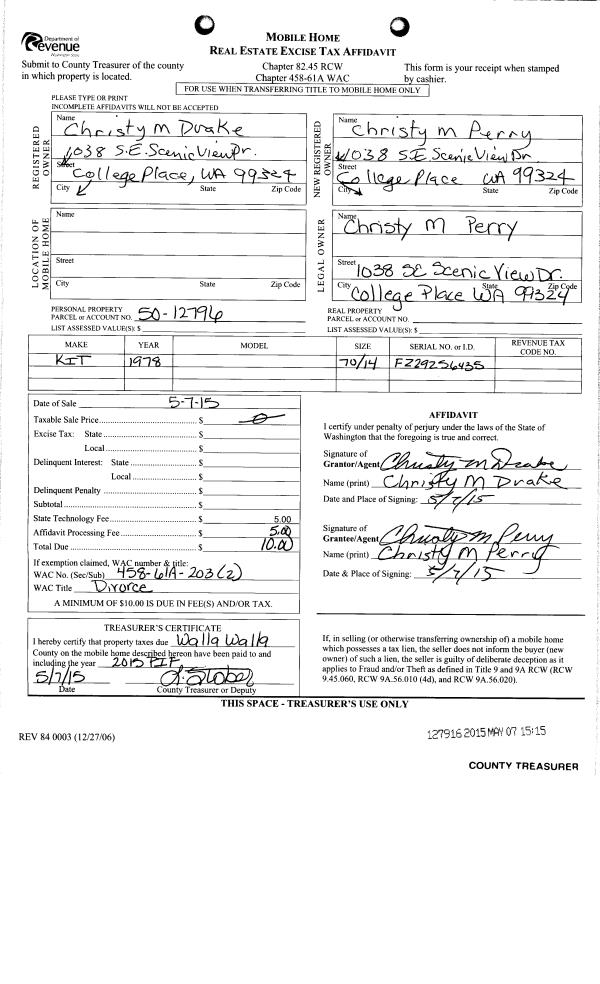 Department of
Revenue
Washington State
MOBILE HOME
REAL ESTATE EXCISE TAX AFFIDAVIT
Submit to County Treasurer of the county
in which property is located.
Chapter 82.45 RCW
Chapter 458-61A WAC
This form is your receipt when stamped
by cashier.
FOR USE WHEN TRANSFERRING TITLE TO MOBILE HOME ONLY
PLEASE TYPE OR PRINT
INCOMPLETE AFFIDAVITS WILL NOT BE ACCEPTED
REGISTERED OWNER
Name
Christy M Drake
1038 S.E. Scenic View Dr.
Street
College Place, WA 99324
City State Zip Code
NEW REGISTERED OWNER
Name
Christy M Perry
1038 S.E Scenic View Dr
Street
College Place WA 99324
City State Zip Code
LOCATION OF MOBILE HOME
Name
Street
City State Zip Code
LEGAL OWNER
Name
Christy M Perry
Street 1038 SE Scenic View Dr.
City State Zip Code
College Place WA 99324
PERSONAL PROPERTY
PARCEL or ACCOUNT NO. 50-12796
LIST ASSESSED VALUE(S): $
REAL PROPERTY
PARCEL or ACCOUNT NO.
LIST ASSESSED VALUE(S): $
MAKE YEAR MODEL SIZE SERIAL NO. or I.D. REVENUE TAX CODE NO.
KIT 1978 70/14 FZ29256435
Date of Sale 5-7-15
Taxable Sale Price $ 0
Excise Tax: State $
Local $
Delinquent Interest: State $
Local $
Delinquent Penalty $
Subtotal $
State Technology Fee $ 5.00
Affidavit Processing Fee $ 5.00
Total Due $ 10.00
If exemption claimed, WAC number & title:
WAC No. (Sec/Sub) 458-61A-203(2)
WAC Title Divorce
A MINIMUM OF $10.00 IS DUE IN FEE(S) AND/OR TAX.
AFFIDAVIT
I certify under penalty of perjury under the laws of the State of
Washington that the foregoing is true and correct.
Signature of
Grantor/Agent Christy M Drake
Name (print) Christy M Drake
Date and Place of Signing: 5/7/15
Signature of
Grantee/Agent Christy M Perry
Name (print) Christy M Perry
Date & Place of Signing: 5/7/15
TREASURER'S CERTIFICATE
I hereby certify that property taxes due Walla Walla
County on the mobile home described hereon have been paid to and
including the year 2015 PIF
5/7/15
Date County Treasurer or Deputy
If, in selling (or otherwise transferring ownership of) a mobile home
which possesses a tax lien, the seller does not inform the buyer (new
owner) of such a lien, the seller is guilty of deliberate deception as it
applies to Fraud and/or Theft as defined in Title 9 and 9A RCW (RCW
9.45.060, RCW 9A.56.010 (4d), and RCW 9A.56.020).
THIS SPACE - TREASURER'S USE ONLY
REV 84 0003 (12/27/06)
127916 2015 MAY 07 15:15
COUNTY TREASURER